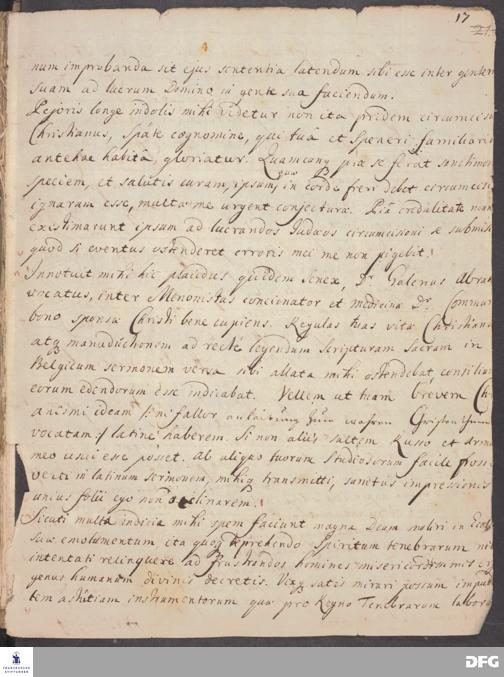 17
num improbanda sit ejus sententia latendum sibi esse inter gentem
suam ad lucrum Domino in gente sua faciendum.
Pejoris longe indolis mihi videtur non ita pridem circumcisus
Christianus, Spate cognomine, qui tuâ et Speneri familiarit
antehac habitâ, gloriatur. Quamcunq pia se ferat sanctimon
speciem, et salutis curam, ipsum, in corde fieri debet circumcisi
ignarum esse, multa me urgent conjecturae. Piâ credulitate non
existimarunt ipsum ad lucrandos Judaeos circumcisioni se submisi
quod si eventus ostenderet erroris mei me non pigebit.
Innotuit mihi hic placidus quidem senex, Dr Galenus Abrah
vocatus, inter Menonistas concionator et medicinae Dr. Commun
bono sponsae Christi bene cupiens. Regulas tuas vitae Christianae
atq manuductionem ad recte legendum Scripturam Sacram in
Belgicum sermonem versa sibi allata mihi ostendebat, consilium
eorum edendorum esse indicabat. Vellem utinam brevem Chr
anismi ideam si ni fallor anleitung zum wahren Christenthum
vocatam :/ latine haberem. Si non aliis saltem Russo et Arme
meo usui esse posset. Ab aliquo tuorum studiosorum facile posse
verti in latinum sermonem, mihiq transmitti, sumtus impressionis
unius folii ego non declinarem.
Sicuti multa indicia mihi spem faciunt magna Deum moliri in Eccle
suae emolumentum ita quoq deprehendo Spiritum tenebrarum nih
intentati relinquere ad frustrandos homines misericordissimis erg
genus humanum divinis decretis. Vixq satis mirari possum impud
tem astutiam instrumentorum quae pro Regno Tenebrarum labora
FRANCKESCHE STIFTUNGEN
DFG